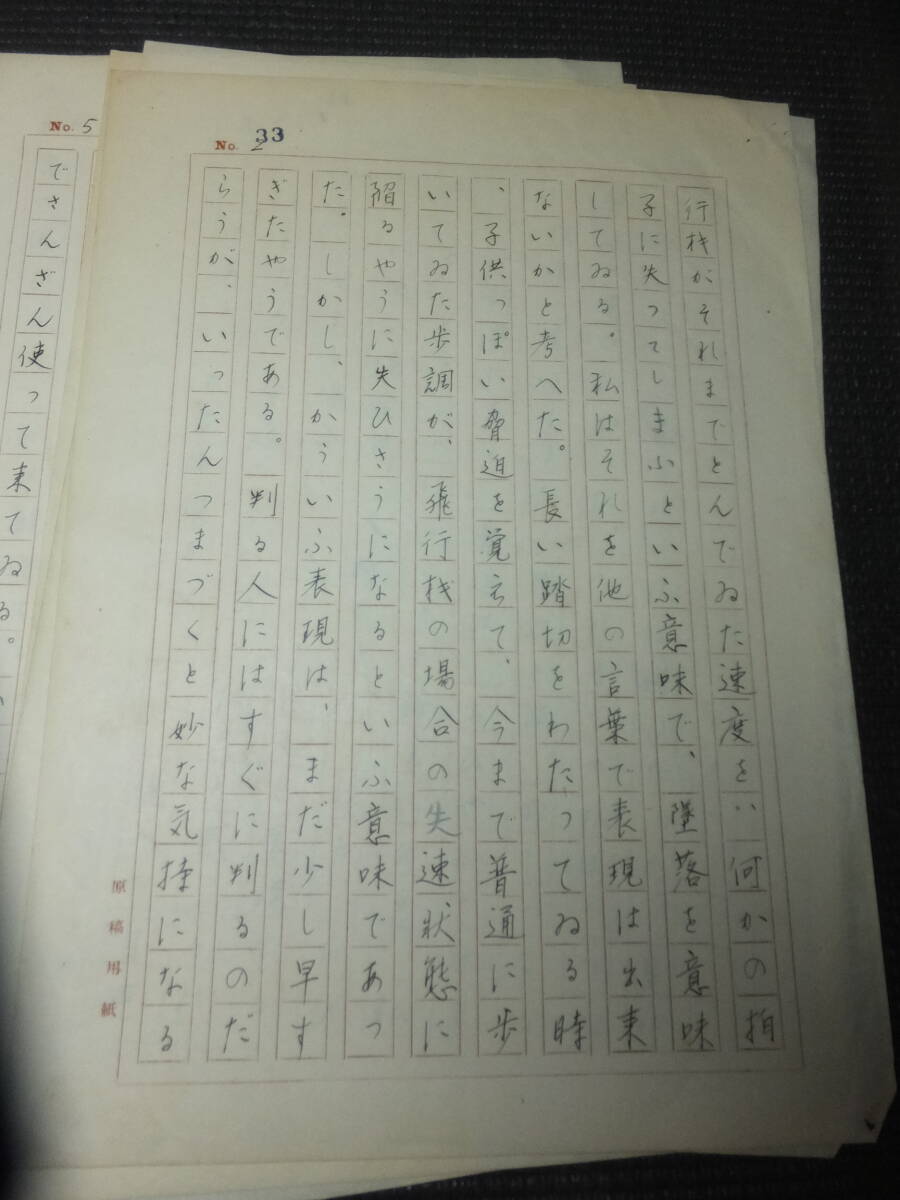 No. 2
33
行機がそれまでとんでゐた速度を、何かの拍
子に失つてしまふといふ意味で、墜落を意味
してゐる。私はそれを他の言葉で表現は出来
ないかと考へた。長い踏切をわたつてゐる時
、子供っぽい脅迫を覚えて、今まで普通に歩
いてゐた歩調が、飛行機の場合の失速状態に
陥るやうに失ひさうになるといふ意味であつ
た。しかし、かういふ表現は、まだ少し早す
ぎたやうである。判る人にはすぐに判るのだ
らうが、いったんつまづくと妙な気持になる
原稿用紙
No. 5
でさんざん使って来てゐる。